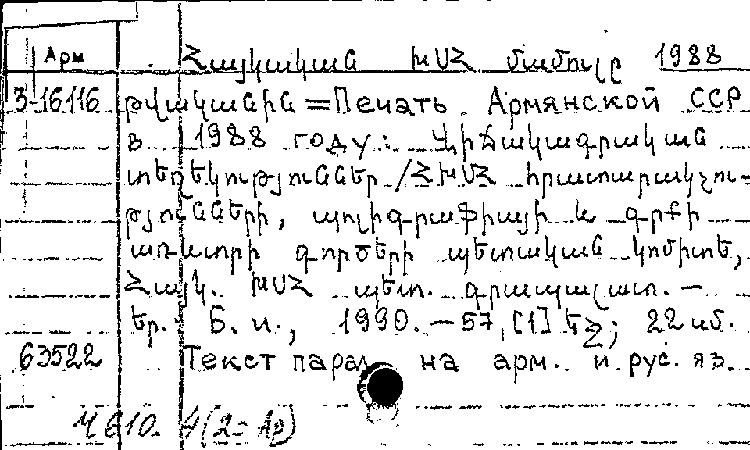 Арм Հայկական ԽՍՀ մամուլը 1988
3-16116 թվականին = Печать Армянской ССР
в 1988 году: Վիճակագրական
տեղեկություններ / ՀԽՍՀ հրատարակչու-
թյունների, պոլիգրաֆիայի և գրքի
առևտրի գործերի պետական կոմիտե,
Հայկ. ԽՍՀ պետ. գրապալատ. —
Եր. Б. и., 1990. — 57, [1] էջ; 22 սմ.
63522 Текст парал. на арм. и рус. яз.
Ч610. Я(2=Ар)